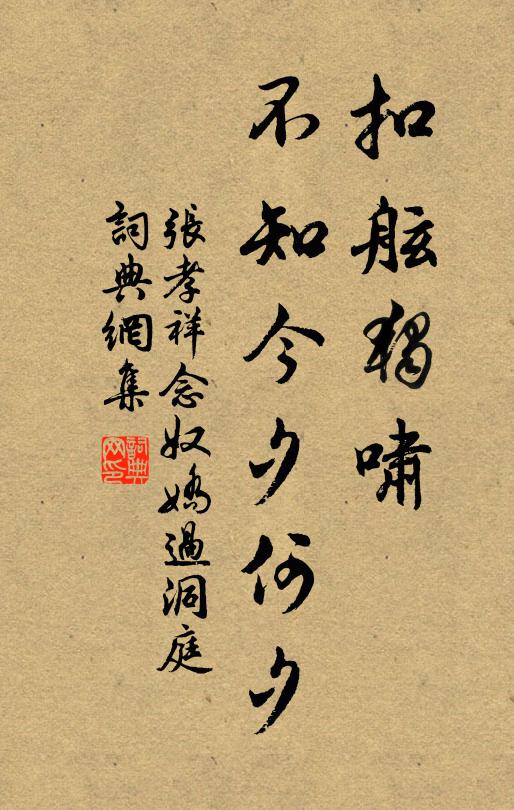 扣舷獨嘯
不知今夕何夕
張孝祥念奴嬌過洞庭
詞典網集
詞典网印